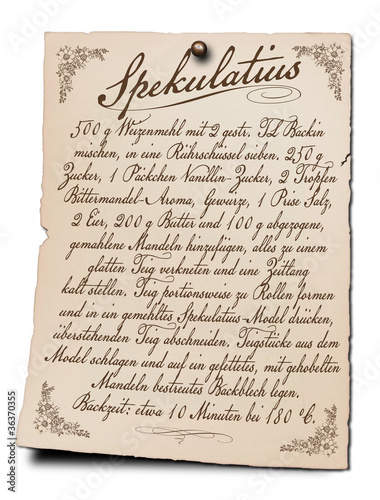 Spekulatius
500 g Weizenmehl mit 2 gestr. TL Backin
mischen, in eine Rührschüssel sieben. 250 g
Zucker, 1 Päckchen Vanillin-Zucker, 2 Tropfen
Bittermandel-Aroma, Gewürze, 1 Prise Salz,
2 Eier, 200 g Butter und 100 g abgezogene,
gemahlene Mandeln hinzufügen, alles zu einem
glatten Teig verkneten und eine Zeitlang
kalt stellen. Teig portionsweise zu Rollen formen
und in ein gemehltes Spekulatius-Model drücken,
überstehenden Teig abschneiden. Teigstücke aus dem
Model schlagen und auf ein gefettetes, mit gehobelten
Mandeln bestreutes Backblech legen.
Backzeit: etwa 10 Minuten bei 180 °C.
Adobe Stock | #36370355